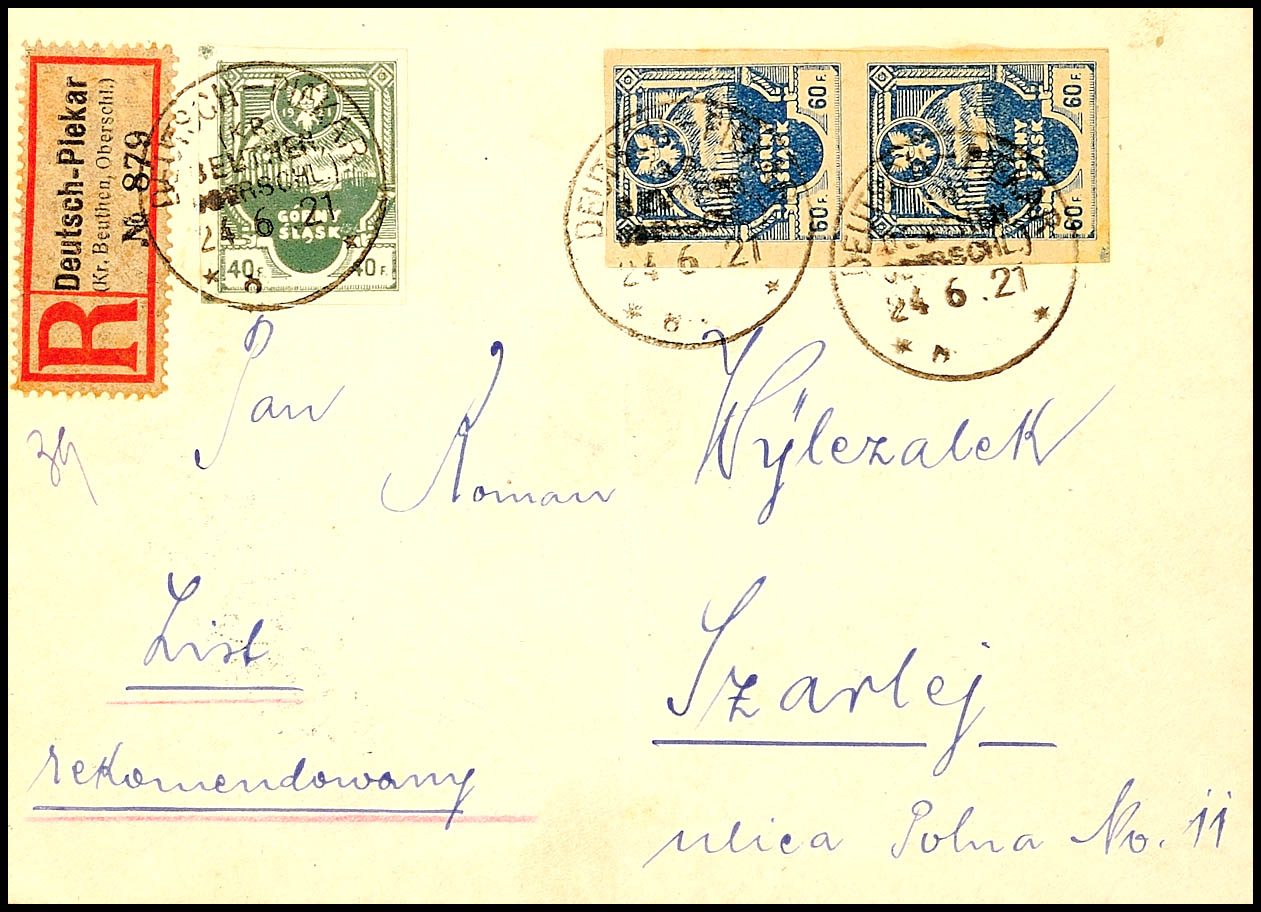 Deutsch-Piekar
(Kr. Beuthen, Oberschl.)
№ 879
R
1921
GÓRNY
ŚLĄSK
40 F. 40 F.
DEUTSCH-PIEKAR
(KR.
BEUTHEN
OBERSCHL.)
24 6 .21
60 F. 60 F.
GÓRNY
ŚLĄSK
24 6 .21
60 F. 60 F.
GÓRNY
ŚLĄSK
24 6 .21
Pan
Roman Wylczalek
List
rekomendowany
Szarlej
ulica Polna No. 11